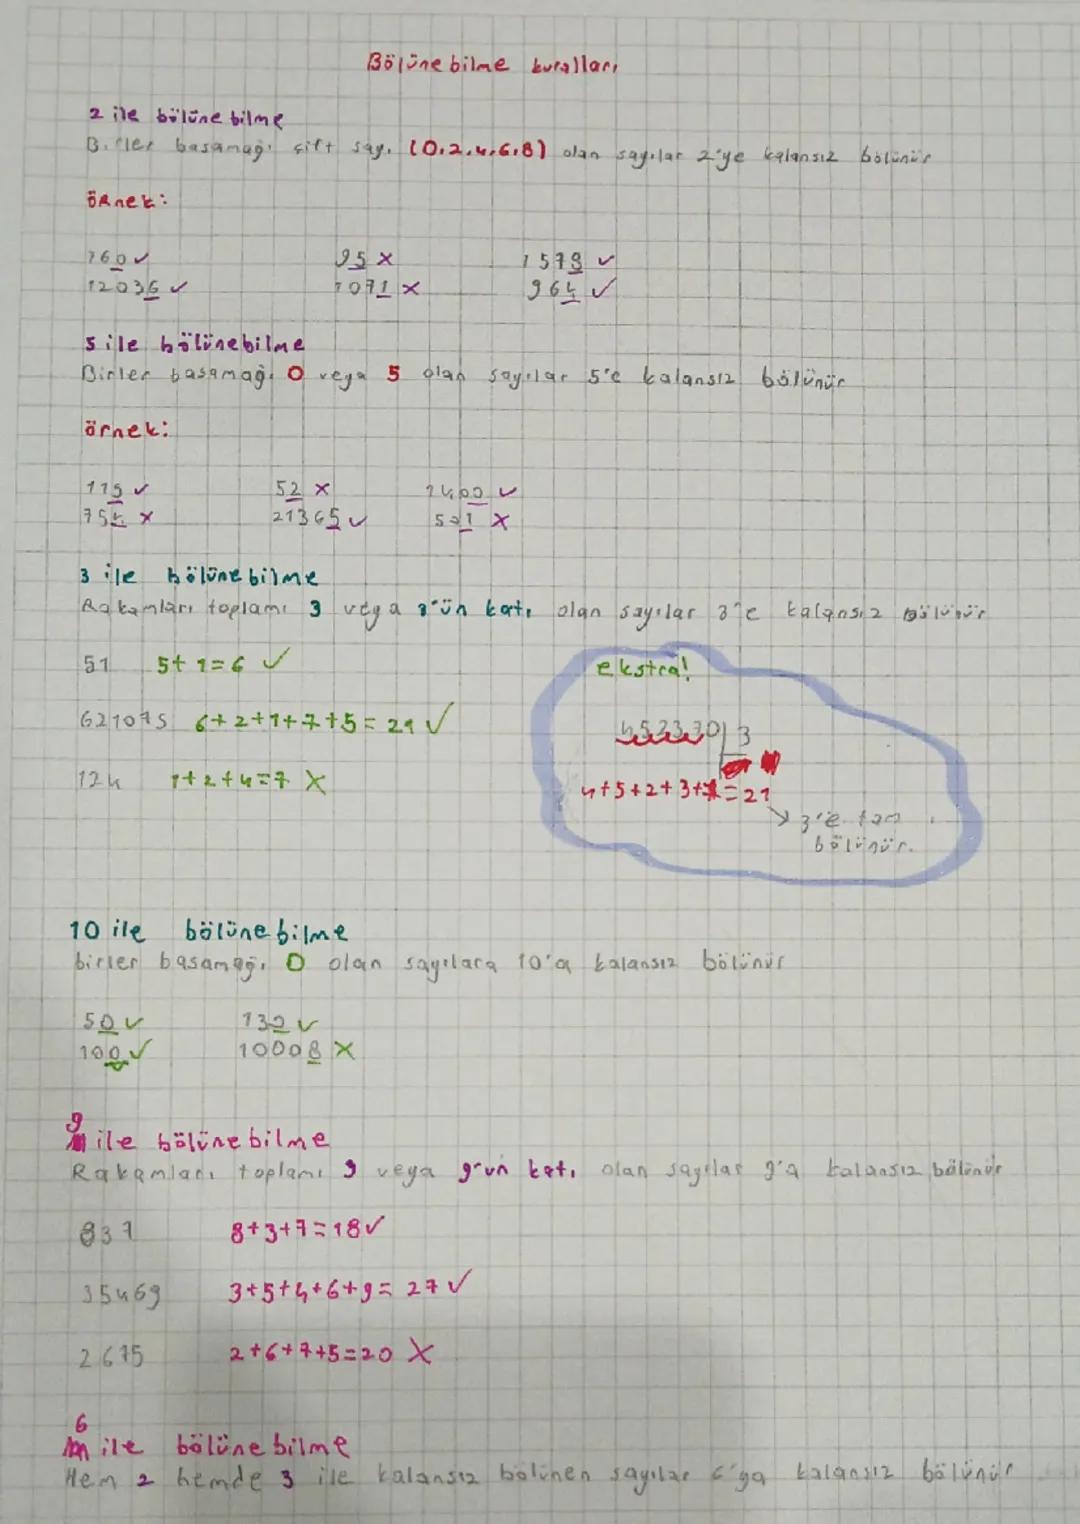 Bölünebilme kuralları
2 ile bölünebilme
Birler basamağı çift sayı (0,2,4,6,8) olan sayılar 2'ye kalansız bölünür
örnek:
760 ✓ 95 × 1578 ✓
12036 ✓ 1071 × 964 ✓
5 ile bölünebilme
Birler basamağı 0 veya 5 olan sayılar 5'e kalansız bölünür
örnek:
115 ✓ 52 × 2400 ✓
754 × 21365 ✓ 521 ×
3 ile bölünebilme
Rakamları toplamı 3 veya 3'ün katı olan sayılar 3'e kalansız bölünür
51 5+1=6 ✓
621075 6+2+1+7+5=21 ✓
124 1+2+4=7 ×
ekstra!
452330 3
4+5+2+3+ =21
→ 3'e tam
bölünür.
10 ile bölünebilme
birler basamağı 0 olan sayılara 10'a kalansız bölünür
50 ✓ 130 ✓
100 ✓ 10008 ×
9 ile bölünebilme
Rakamları toplamı 9 veya 9'un katı olan sayılar 9'a kalansız bölünür
837 8+3+7=18 ✓
35469 3+5+4+6+9=27 ✓
2675 2+6+7+5=20 ×
6 ile bölünebilme
Hem 2 hemde 3 ile kalansız bölünen sayılar 6'ya kalansız bölünür